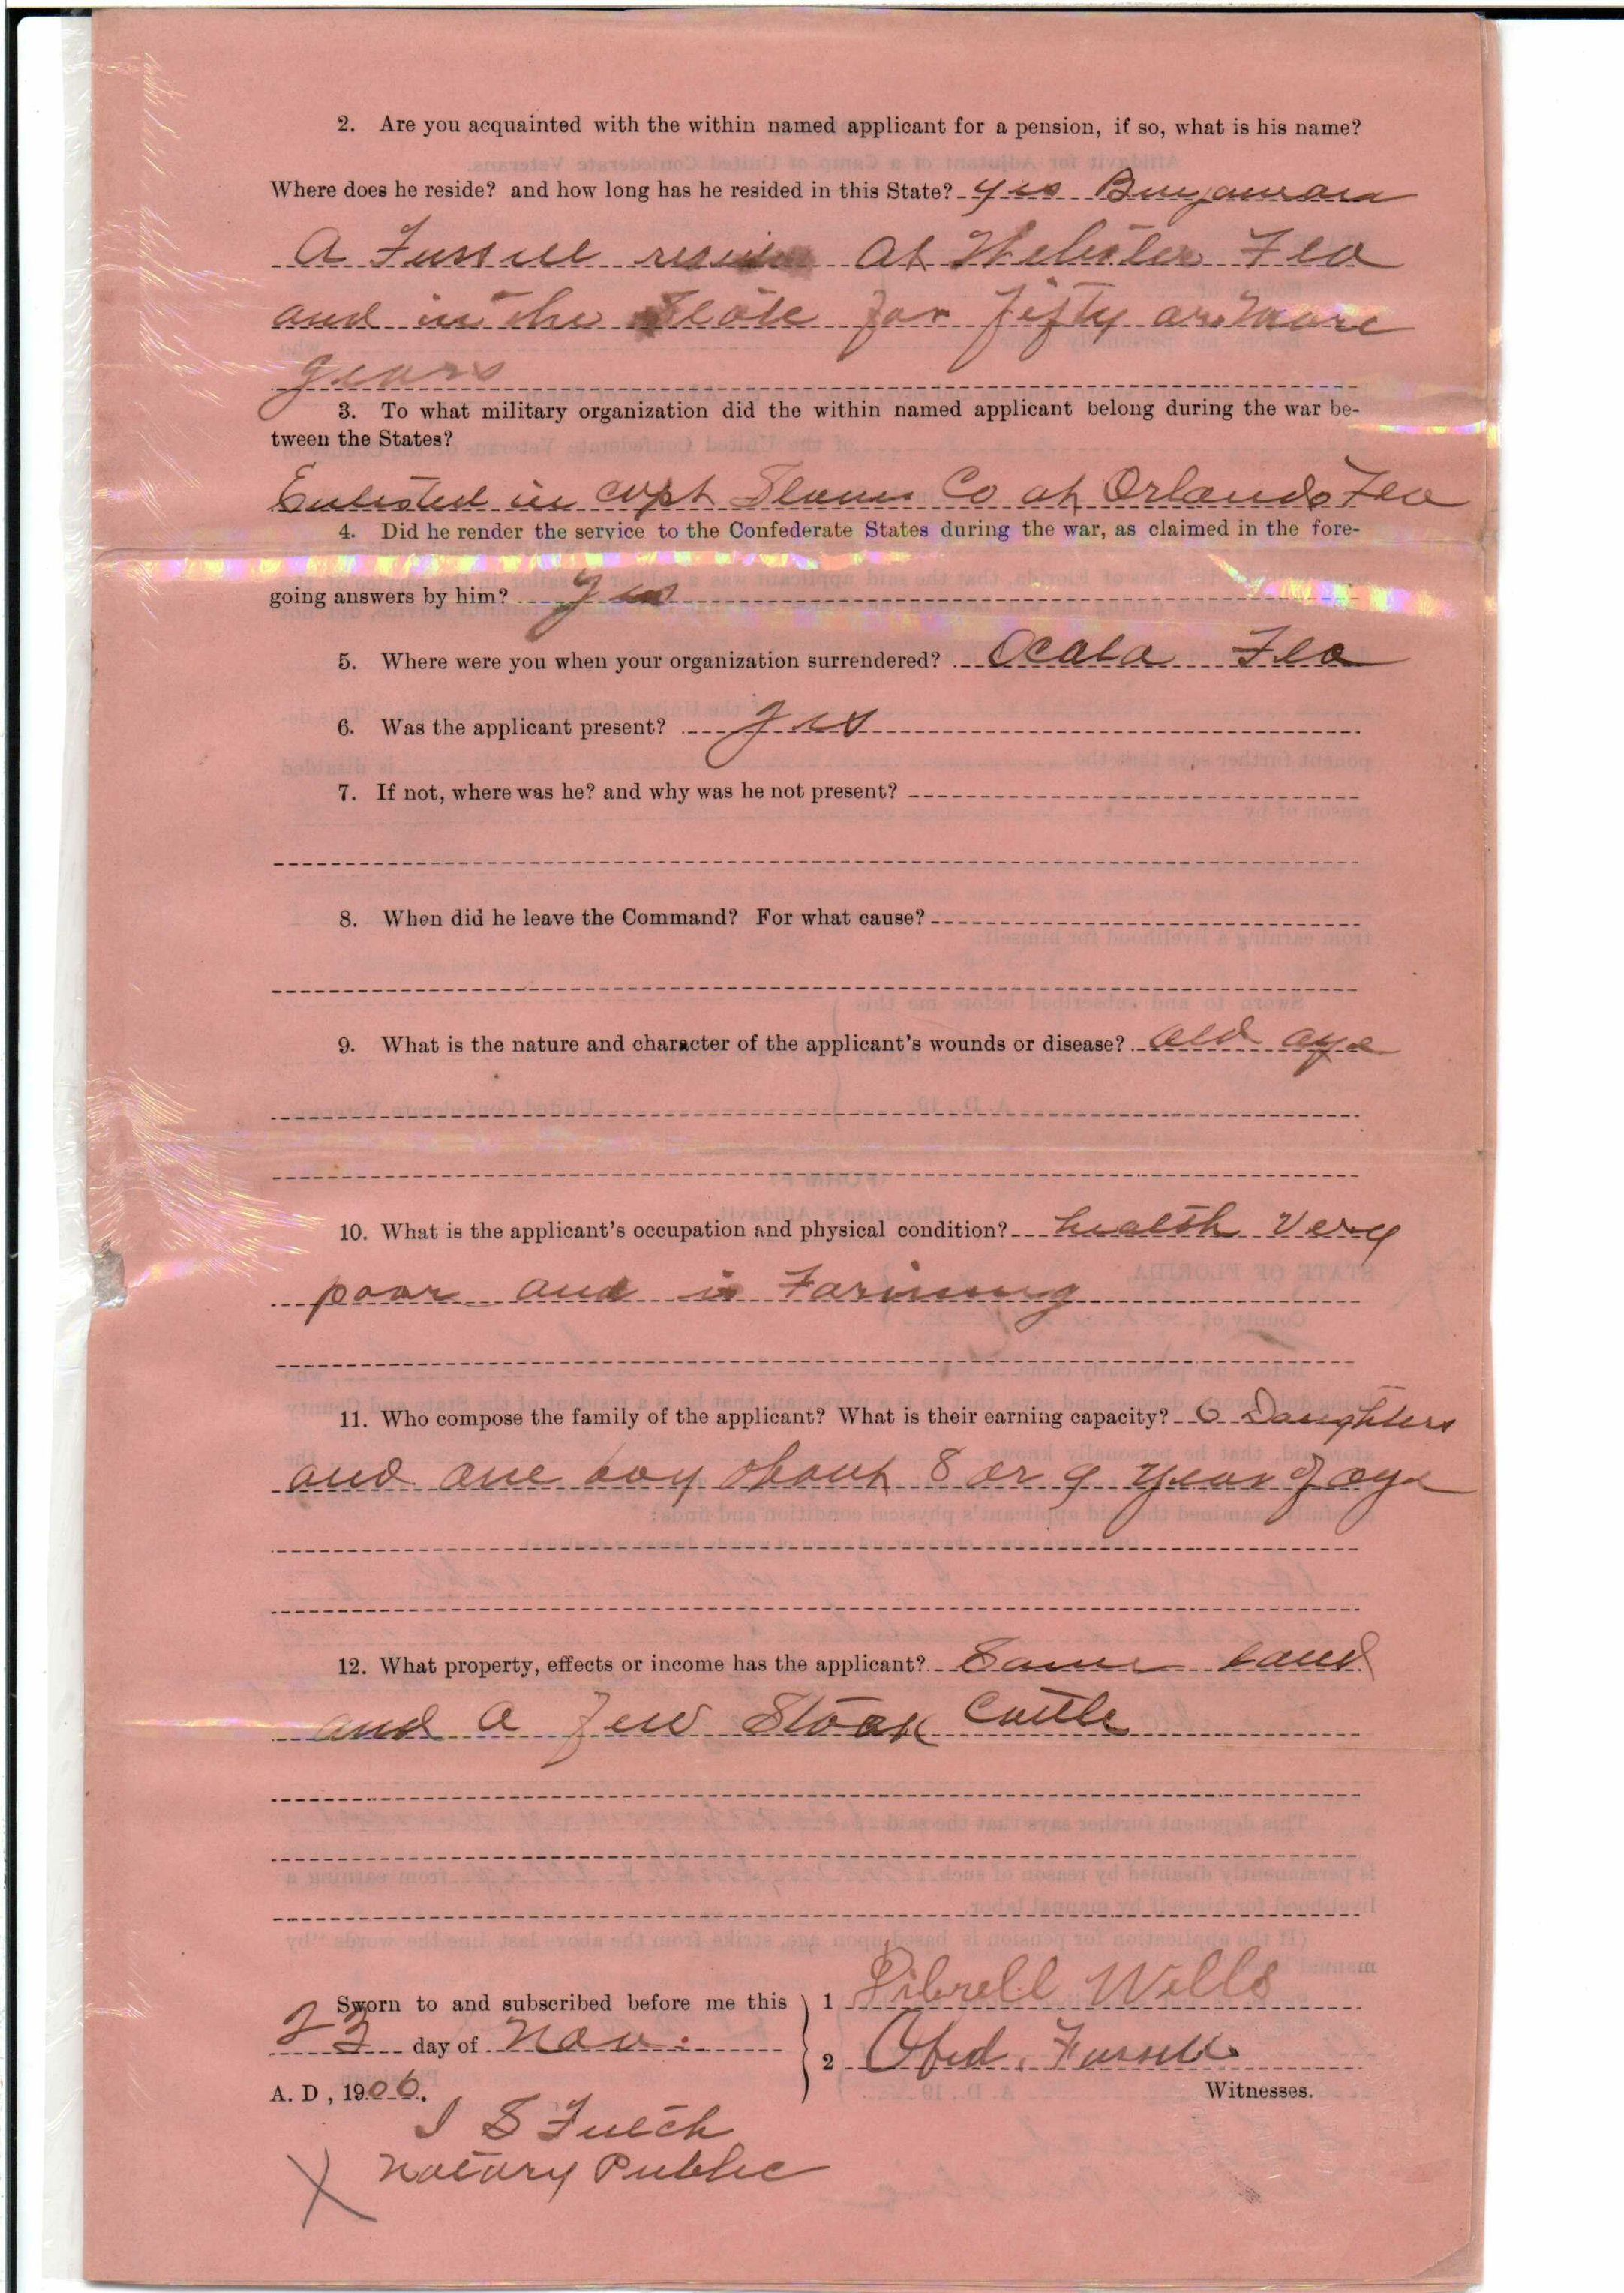 2. Are you acquainted with the within named applicant for a pension, if so, what is his name?
Where does he reside? and how long has he resided in this State? yes Benjaman
A Fussell reside at Webster Fla
and in the State for fifty or more
years
3. To what military organization did the within named applicant belong during the war be-
tween the States?
Enlisted in capt Co at Orlando Fla
4. Did he render the service to the Confederate States during the war, as claimed in the fore-
going answers by him? yes
5. Where were you when your organization surrendered? Ocala Fla
6. Was the applicant present? yes
7. If not, where was he? and why was he not present?
8. When did he leave the Command? For what cause?
9. What is the nature and character of the applicant's wounds or disease? old age
10. What is the applicant's occupation and physical condition? health very
poor and is Farming
11. Who compose the family of the applicant? What is their earning capacity? 6 Daughters
and one boy about 8 or 9 years of age
12. What property, effects or income has the applicant? Some land
and a few Stock Cattle
Sworn to and subscribed before me this 1 Wells
23 day of Nov. 2 Obed. Fussell
A. D, 1906. Witnesses.
I S Futch
Notary Public